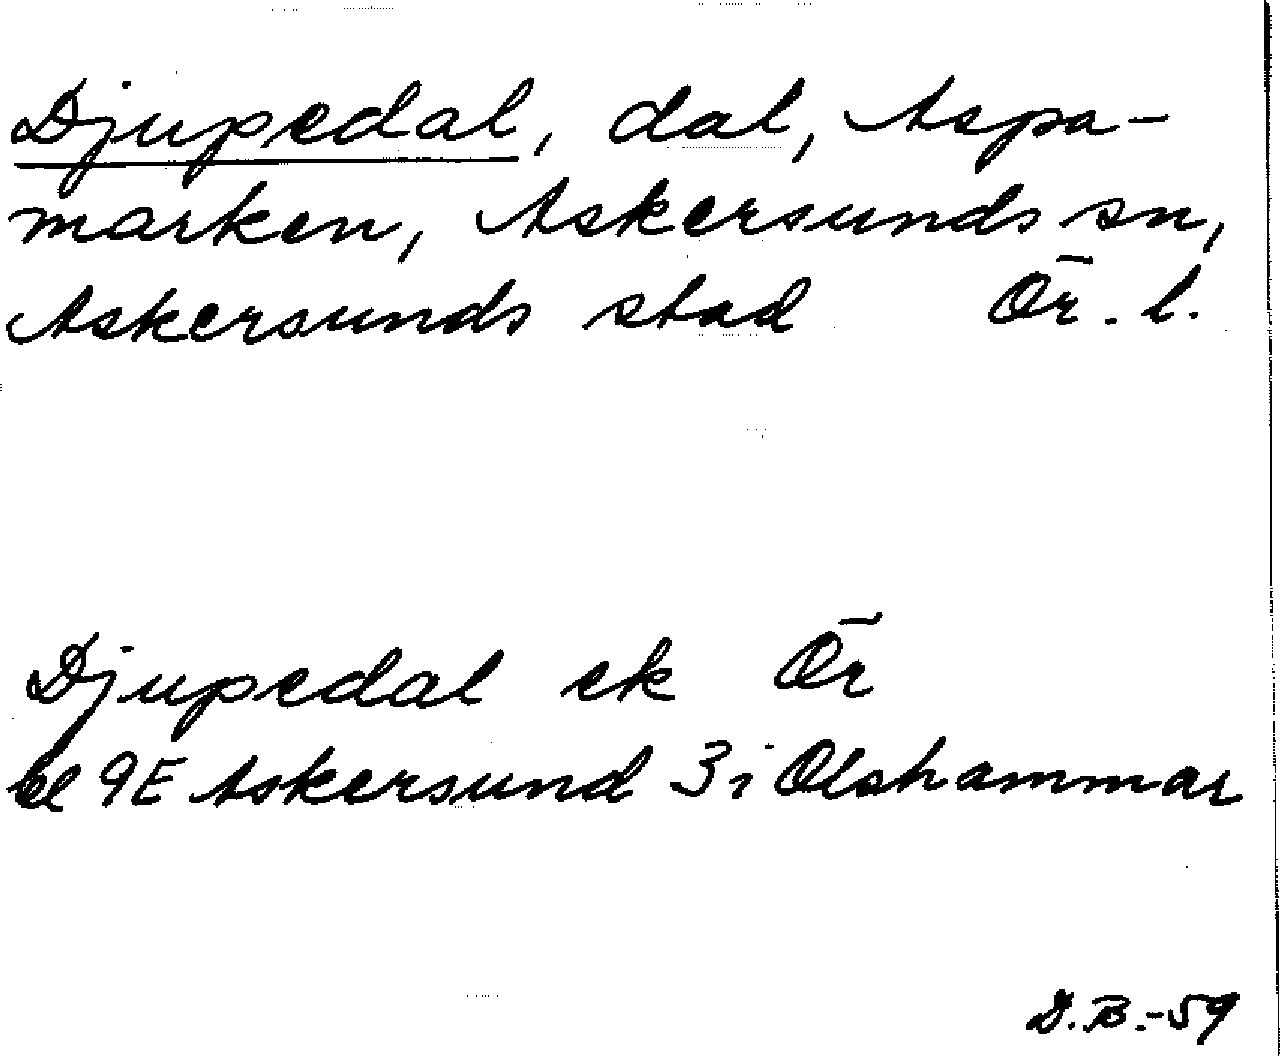 Djupedal, dal, Aspa-
marken, Askersunds sn,
Askersunds stad Ör. l.
Djupedal ek Ör
bl 9E Askersund 3i Olshammar
D.B.-59